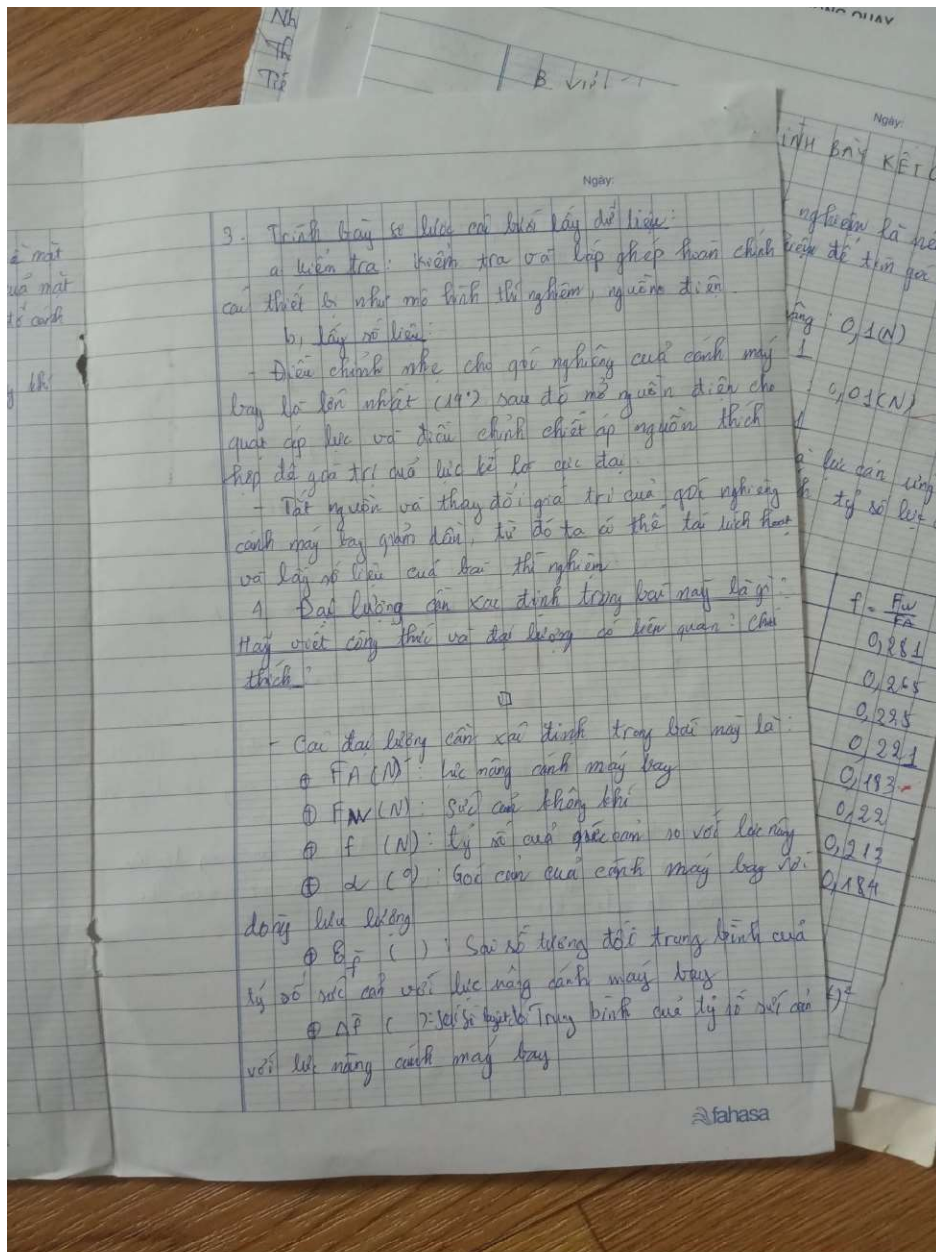 Nh
Tiế
B. Viết
Ngày:
INH BÀY KẾT
ề mặt
uả mặt
cánh
Ngày:
3. Trình bày sơ lược các bước lấy dữ liệu:
a, kiểm tra: kiểm tra và lắp ghép hoàn chỉnh
các thiết bị như mô hình thí nghiệm, nguồn điện
b, lấy số liệu:
- Điều chỉnh nhẹ cho góc nghiêng của cánh máy
bay là lớn nhất (19°) sau đó mở nguồn điện cho
quạt áp lực và điều chỉnh chiết áp nguồn thích
hợp để giá trị quả lực kế là cực đại.
- Tắt nguồn và thay đổi giá trị quả góc nghiêng
cánh máy bay giảm dần, từ đó ta có thể
và lấy số liệu của bài thí nghiệm.
4 Đại lượng cần xác định trong bài này là gì?
Hãy viết công thức và đại lượng có liên quan? chú
thích?
- Các đại lượng cần xác định trong bài này là:
⊕ FA (N): lực nâng cánh máy bay
⊕ FW (N): Sức cản không khí
⊕ f (N): tỷ số quả so với lực nâng
⊕ α (°): Góc cản quả cánh máy bay với
dòng lưu lượng
( ): Sai số tương đối trung bình của
tỷ số sức cản với lực nâng cánh máy bay
⊕ Δf̄ ( ): Trung bình quả tỷ số sức cản
với lực nâng cánh máy bay
fahasa
nghiệm là
để tìm giá
0,1(N)
1
0,01(N)
lực cản ứng
tỷ số lực
f = Fw/FA
0,281
0,265
0,225
0,221
0,193
0,22
0,213
0,184